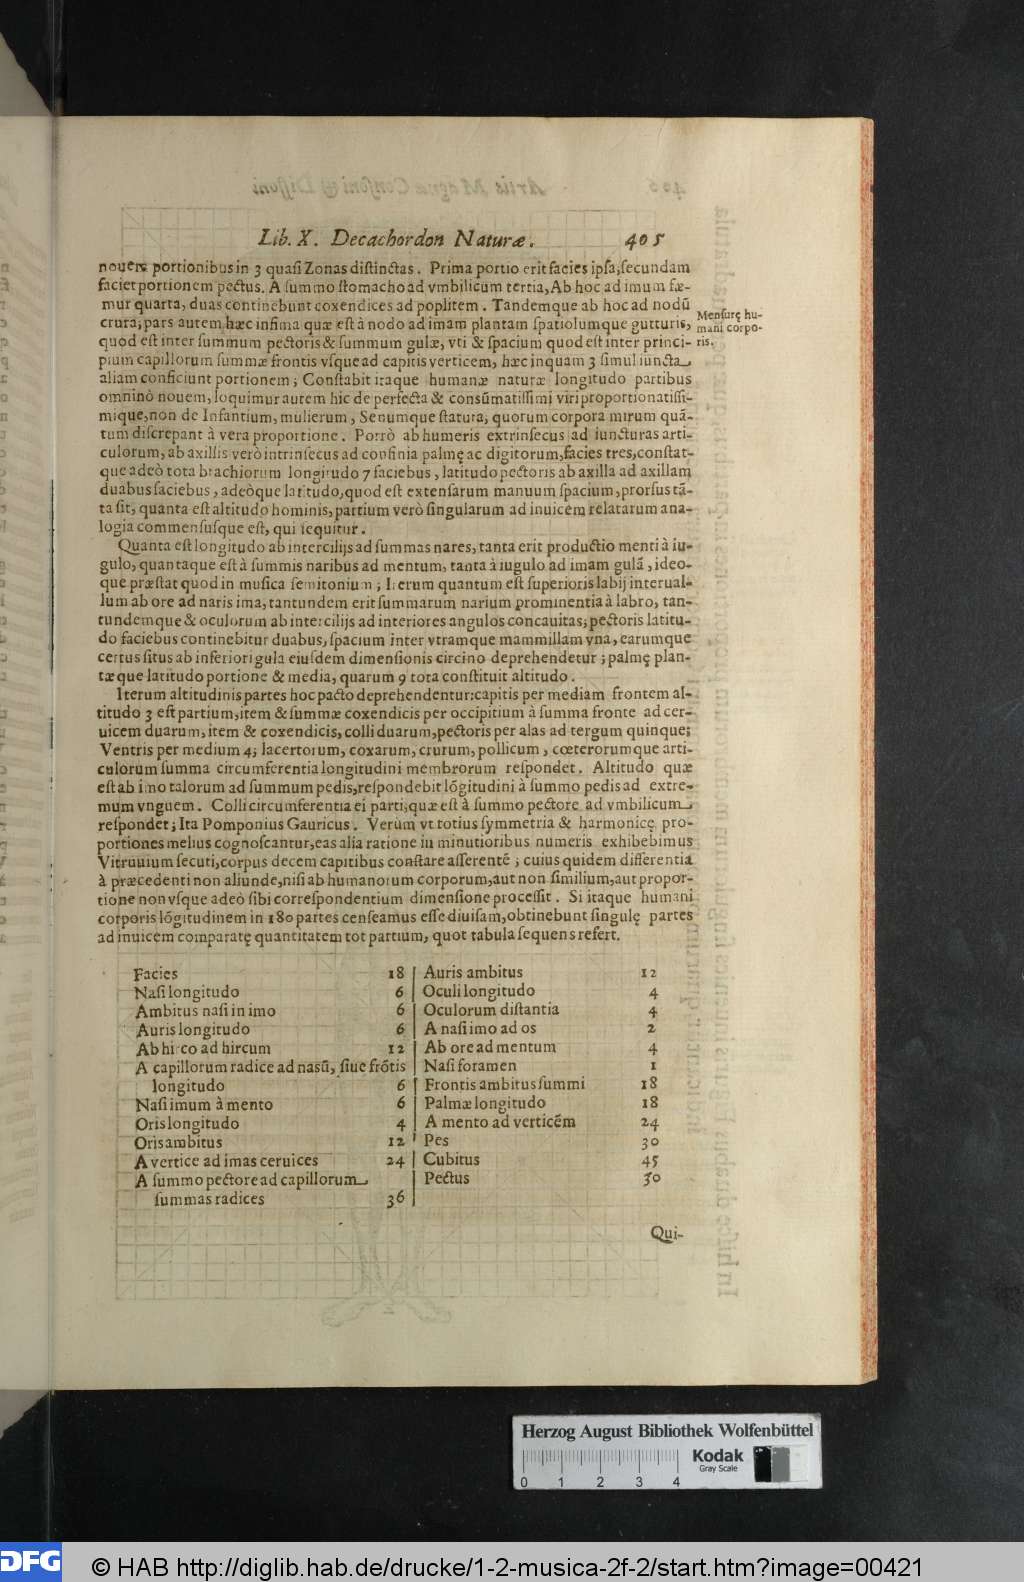 Lib. X. Decachordon Naturæ. 405
nouem portionibus in 3 quasi Zonas distinctas. Prima portio erit facies ipsa, secundam
faciet portionem pectus. A summo stomacho ad vmbilicum tertia, Ab hoc ad imum fæ-
mur quarta, duas continebunt coxendices ad poplitem. Tandemque ab hoc ad nodū
crura; pars autem hæc infima quæ est à nodo ad imam plantam spatiolumque gutturis,
quod est inter summum pectoris & summum gulæ, vti & spacium quod est inter princi-
pium capillorum summæ frontis vsque ad capitis verticem, hæc inquam 3 simul iuncta
aliam conficiunt portionem; Constabit itaque humanæ naturæ longitudo partibus
omninò nouem, loquimur autem hic de perfecta & consūmatissimi viri proportionatissi-
mique, non de Infantium, mulierum, Senumque statura; quorum corpora mirum quā-
tum discrepant à vera proportione. Porrò ab humeris extrinsecus ad iuncturas arti-
culorum, ab axillis verò intrinsecus ad confinia palmę ac digitorum, facies tres, constat-
que adeò tota brachiorum longitudo 7 faciebus, latitudo pectoris ab axilla ad axillam
duabus faciebus, adeòque latitudo, quod est extensarum manuum spacium, prorsus tā-
ta sit, quanta est altitudo hominis, partium verò singularum ad inuicem relatarum ana-
logia commensusque est, qui sequitur.
Quanta est longitudo ab intercilijs ad summas nares, tanta erit productio menti à iu-
gulo, quantaque est à summis naribus ad mentum, tanta à iugulo ad imam gulā, ideo-
que præstat quod in musica semitonium; Iterum quantum est superioris labij interual-
lum ab ore ad naris ima, tantundem erit summarum narium prominentia à labro, tan-
tundemque & oculorum ab intercilijs ad interiores angulos concauitas; pectoris latitu-
do faciebus continebitur duabus, spacium inter vtramque mammillam vna, earumque
certus situs ab inferiori gula eiusdem dimensionis circino deprehendetur; palmę plan-
tæque latitudo portione & media, quarum 9 tota constituit altitudo.
Iterum altitudinis partes hoc pacto deprehendentur: capitis per mediam frontem al-
titudo 3 est partium, item & summæ coxendicis per occipitium à summa fronte ad cer-
uicem duarum, item & coxendicis, colli duarum, pectoris per alas ad tergum quinque;
Ventris per medium 4; lacertorum, coxarum, crurum, pollicum, cœterorumque arti-
culorum summa circumferentia longitudini membrorum respondet. Altitudo quæ
est ab imo talorum ad summum pedis, respondebit lōgitudini à summo pedis ad extre-
mum vnguem. Colli circumferentia ei parti, quæ est à summo pectore ad vmbilicum
respondet; Ita Pomponius Gauricus. Verùm vt totius symmetria & harmonicę pro-
portiones melius cognoscantur, eas alia ratione in minutioribus numeris exhibebimus
Vitruuium secuti, corpus decem capitibus constare asserentē; cuius quidem differentia
à præcedenti non aliunde, nisi ab humanorum corporum, aut non similium, aut propor-
tione non vsque adeò sibi correspondentium dimensione processit. Si itaque humani
corporis lōgitudinem in 180 partes censeamus esse diuisam, obtinebunt singulę partes
ad inuicem comparatę quantitatem tot partium, quot tabula sequens refert.
Mensurę hu-
mani corpo-
ris.
Facies 18
Nasi longitudo 6
Ambitus nasi in imo 6
Auris longitudo 6
Ab hirco ad hircum 12
A capillorum radice ad nasū, siue frōtis
longitudo 6
Nasi imum à mento 6
Oris longitudo 4
Oris ambitus 12
A vertice ad imas ceruices 24
A summo pectore ad capillorum
summas radices 36
Auris ambitus 12
Oculi longitudo 4
Oculorum distantia 4
A nasi imo ad os 2
Ab ore ad mentum 4
Nasi foramen 1
Frontis ambitus summi 18
Palmæ longitudo 18
A mento ad verticēm 24
Pes 30
Cubitus 45
Pectus 30
Qui-
Herzog August Bibliothek Wolfenbüttel
Kodak
Gray Scale
0 1 2 3 4
DFG
© HAB http://diglib.hab.de/drucke/1-2-musica-2f-2/start.htm?image=00421